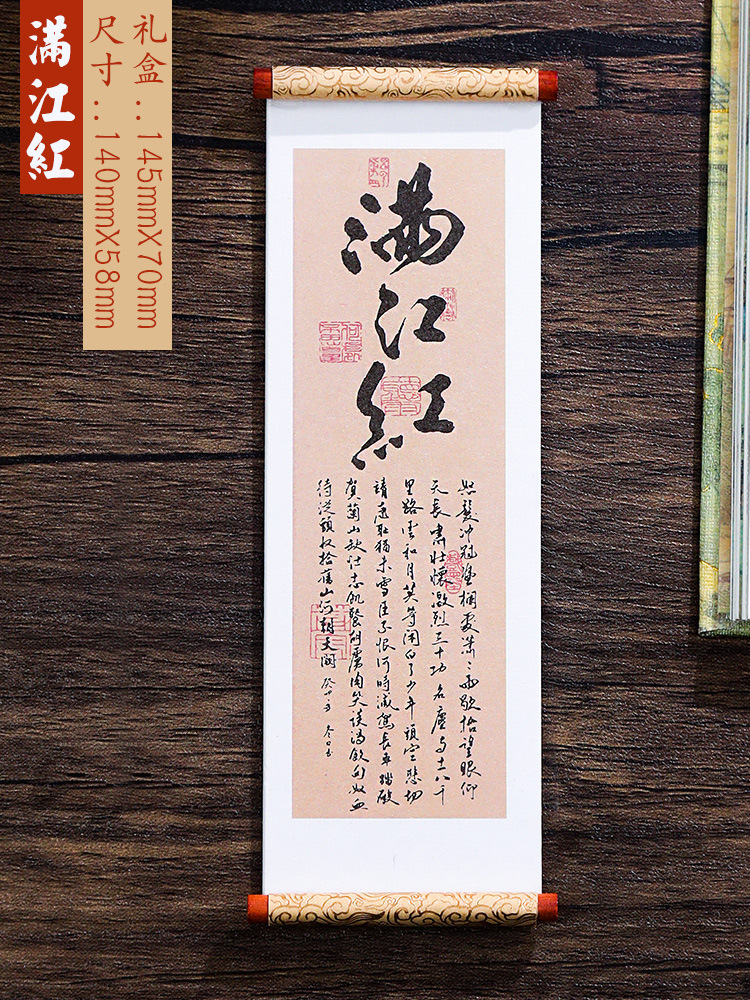 滿江紅
礼盒：145mmX70mm
尺寸：140mmX58mm
满江红
怒髮冲冠憑欄處瀟〻雨歇抬望眼仰
天長嘯壯懷激烈三十功名塵与土八千
里路雲和月莫等闲白了少年頭空悲切
靖康耻猶未雪臣子恨何時滅駕長車踏破
賀蘭山缺壯志飢餐胡虜肉笑談渴飲匈奴血
待從頭收拾舊山河朝天闕